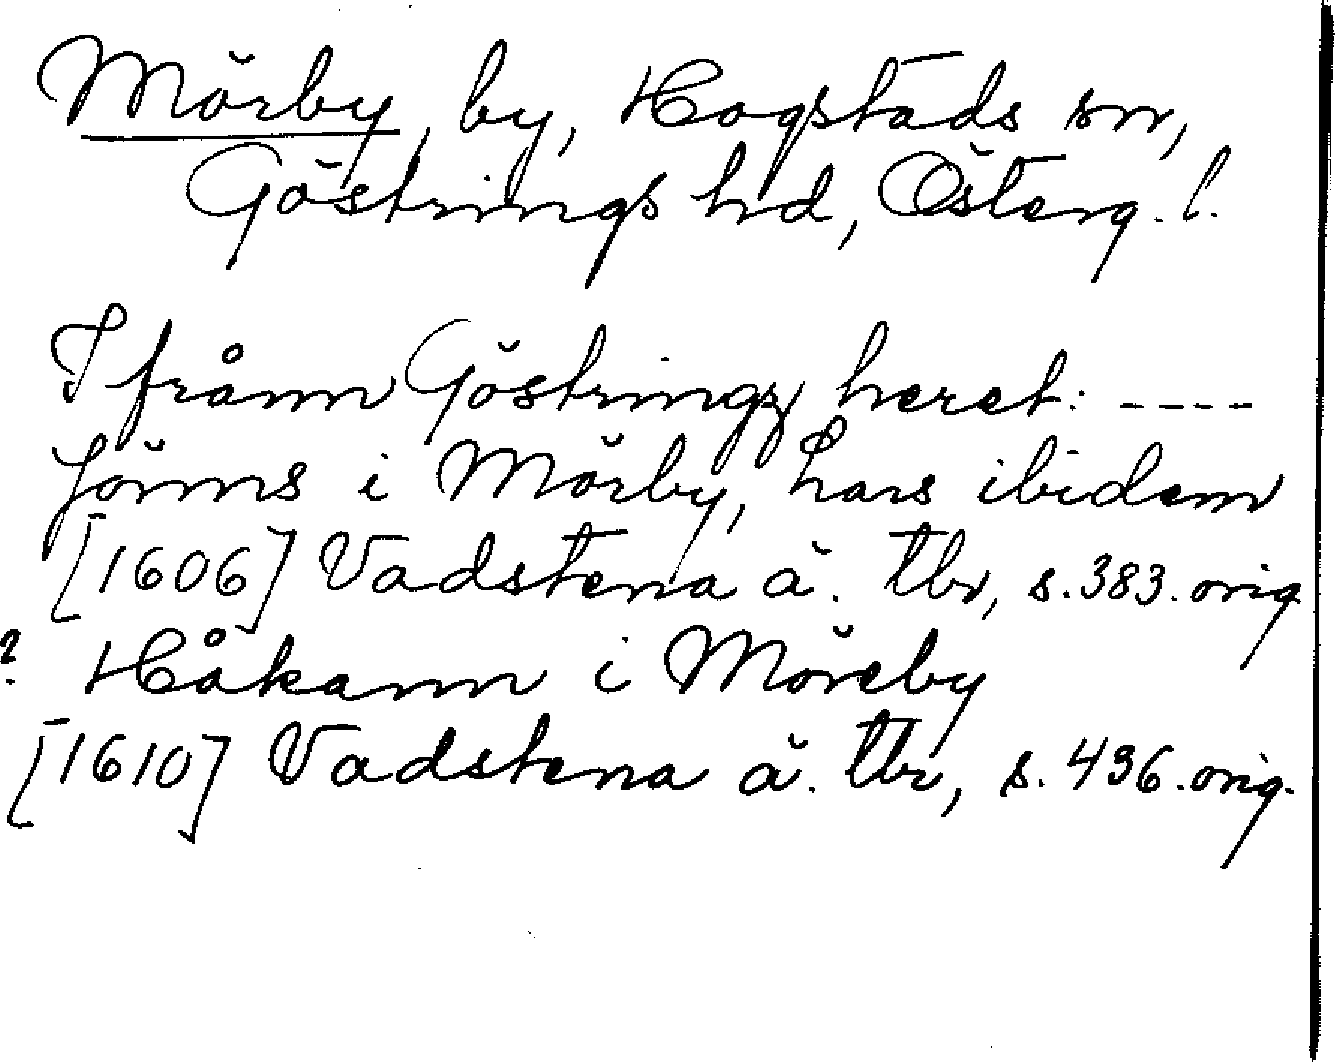 Mörby, by, Hogstads sn,
Göstrings hd, Österg. l.
Ifrånn Göstringz heret: ----
Jönns i Mörby, Lars ibidem
[1606] Vadstena ä. tbr, s. 383. orig
? Håkann i Möreby
[1610] Vadstena ä. tbr, s. 436. orig.